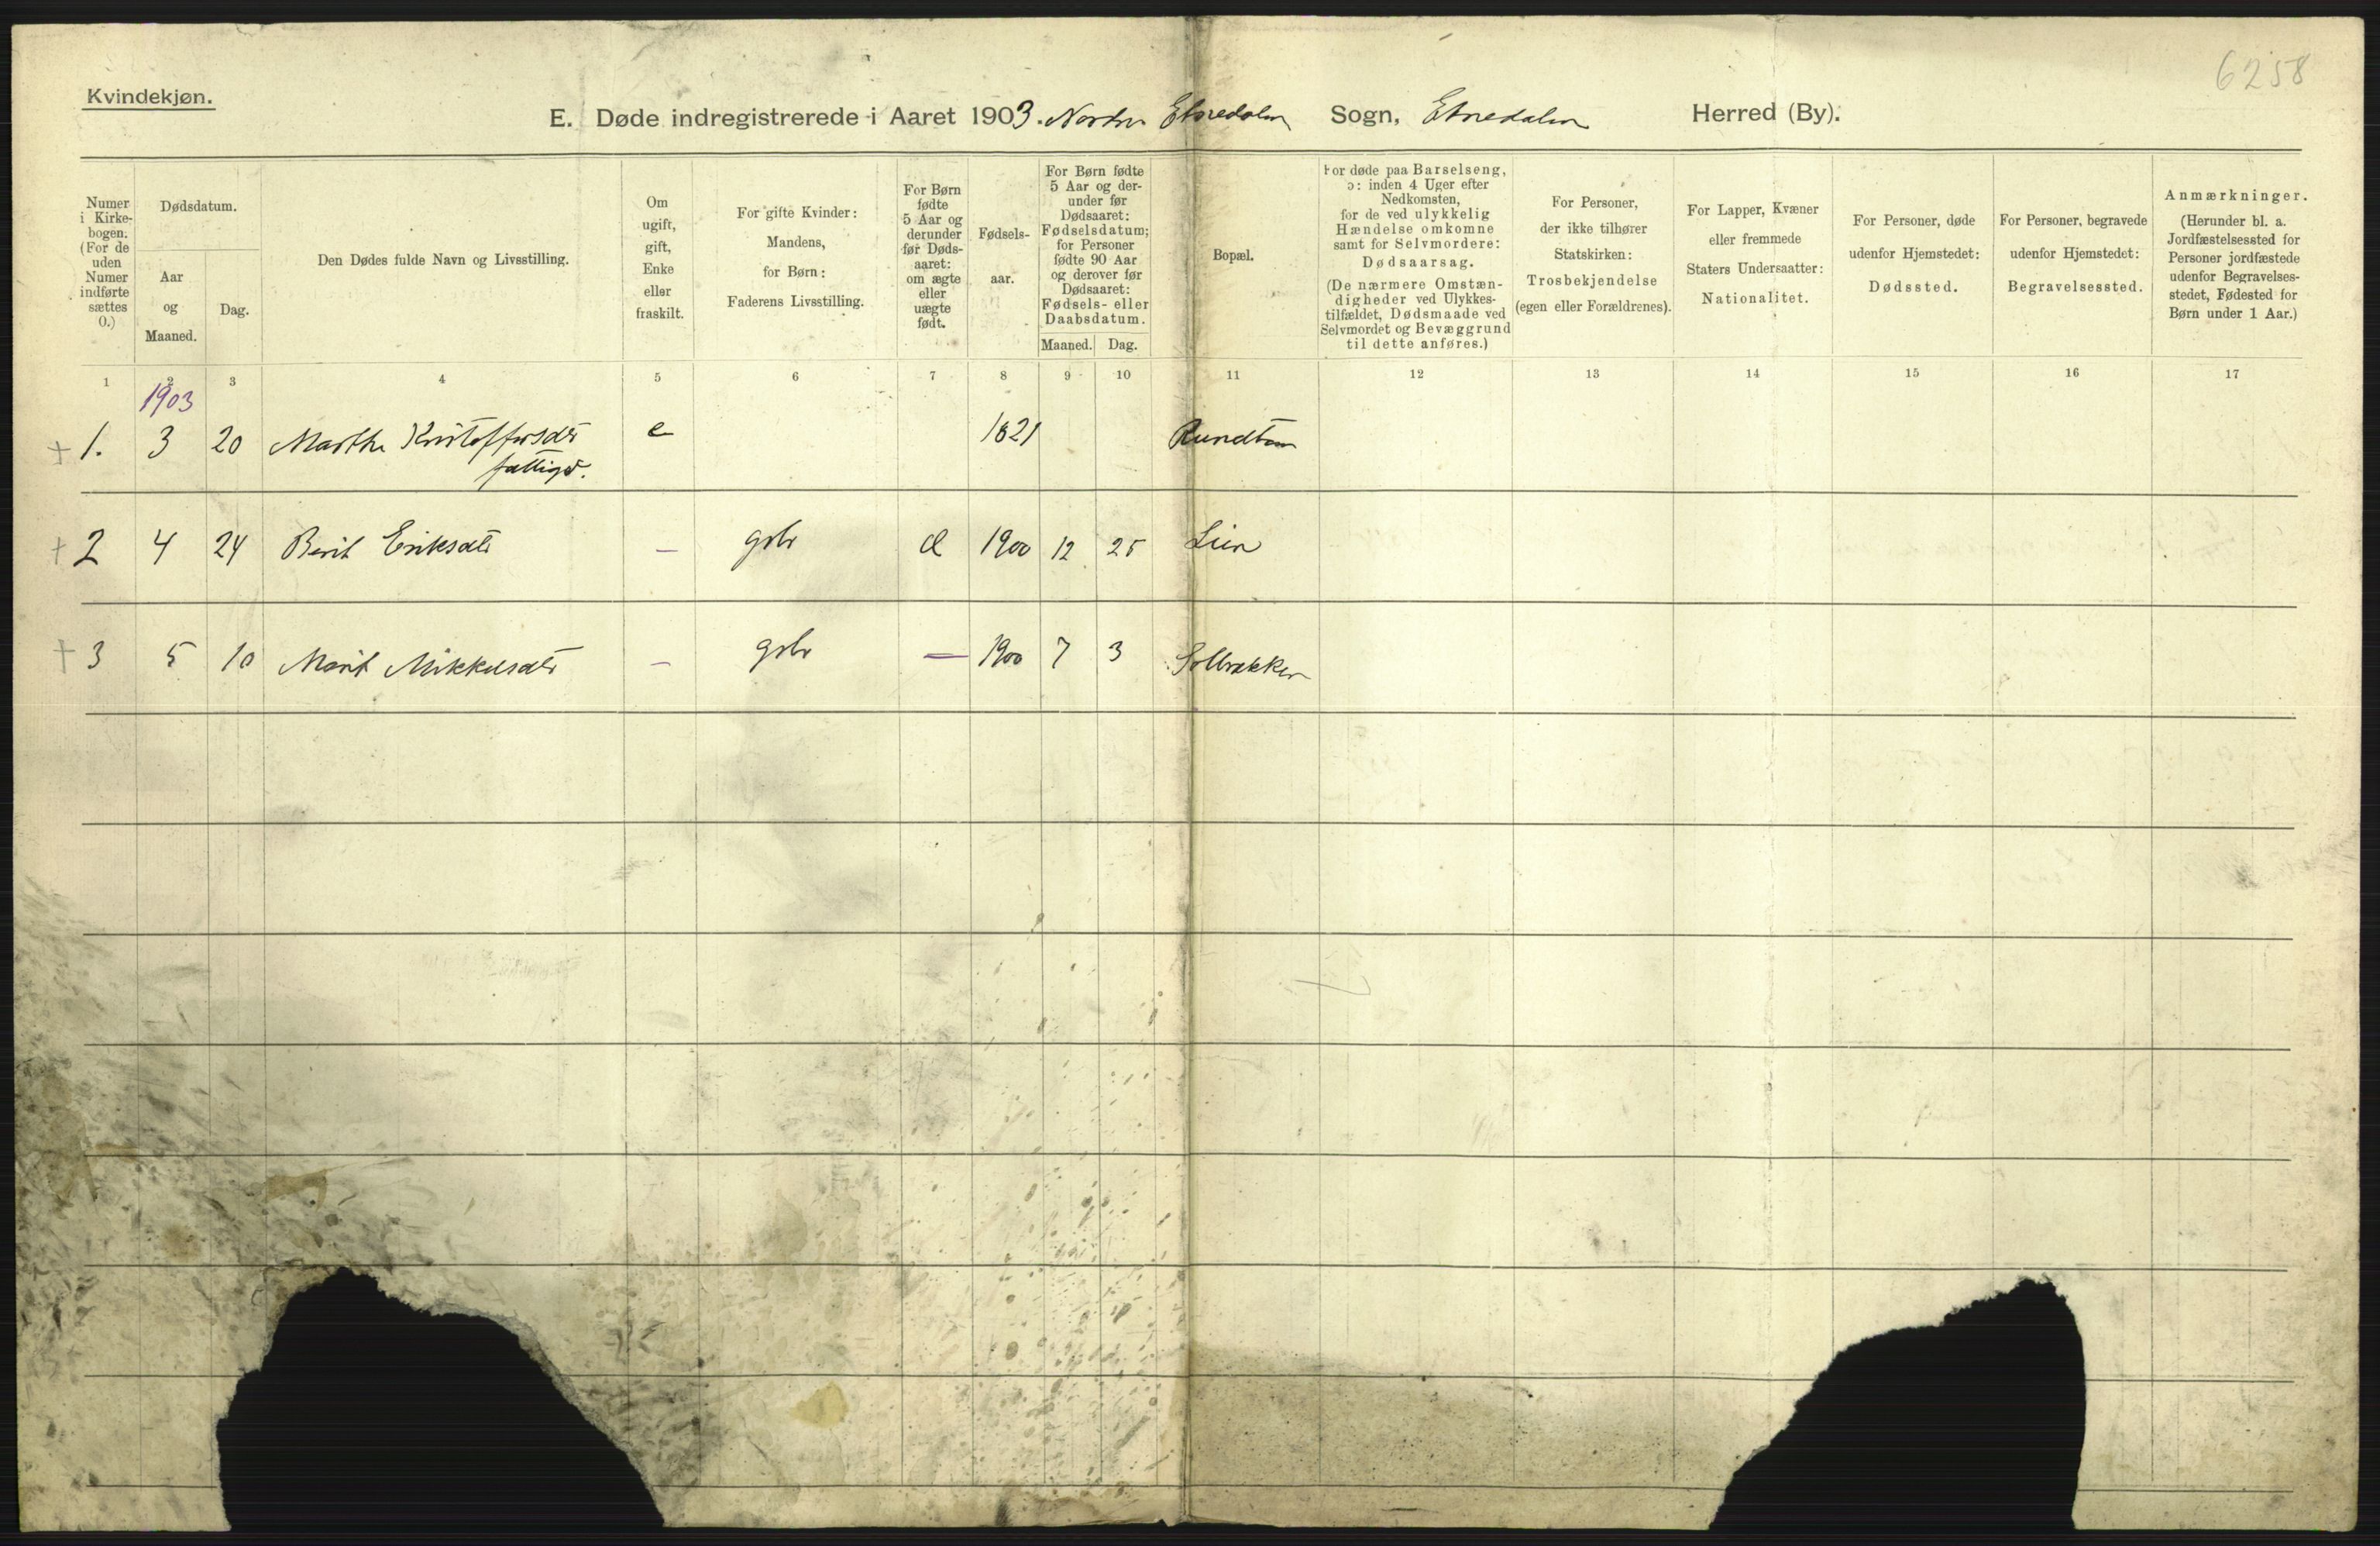 6258
Kvindekjøn.
E. Døde indregistrerede i Aaret 1903. Nordre Etnedalen Sogn, Etnedalen Herred (By).
Numer
i Kirke-
bogen.
(For de
uden
Numer
indførte
sættes
0.)
Dødsdatum.
Aar
og
Maaned.
Dag.
Den Dødes fulde Navn og Livsstilling.
Om
ugift,
gift,
Enke
eller
fraskilt.
For gifte Kvinder:
Mandens,
for Børn:
Faderens Livsstilling.
For Børn
fødte
5 Aar og
derunder
før Døds-
aaret:
om ægte
eller
uægte
født.
Fødsels-
aar.
For Børn fødte
5 Aar og der-
under før
Dødsaaret:
Fødselsdatum;
for Personer
fødte 90 Aar
og derover før
Dødsaaret:
Fødsels- eller
Daabsdatum.
Maaned. Dag.
Bopæl.
For døde paa Barselseng,
ɔ: inden 4 Uger efter
Nedkomsten,
for de ved ulykkelig
Hændelse omkomne
samt for Selvmordere:
Dødsaarsag.
(De nærmere Omstæn-
digheder ved Ulykkes-
tilfældet, Dødsmaade ved
Selvmordet og Bevæggrund
til dette anføres.)
For Personer,
der ikke tilhører
Statskirken:
Trosbekjendelse
(egen eller Forældrenes).
For Lapper, Kvæner
eller fremmede
Staters Undersaatter:
Nationalitet.
For Personer, døde
udenfor Hjemstedet:
Dødssted.
For Personer, begravede
udenfor Hjemstedet:
Begravelsessted.
Anmærkninger.
(Herunder bl. a.
Jordfæstelsessted for
Personer jordfæstede
udenfor Begravelses-
stedet, Fødested for
Børn under 1 Aar.)
1 2 3 4 5 6 7 8 9 10 11 12 13 14 15 16 17
1903
+ 1. 3 20 Marthe Kristoffersdtr e 1821
fattigd.
+ 2 4 24 Berit Eriksdtr — gbr 1900 12 25 Lien
+ 3 5 10 Marit Mikkelsdtr — gbr — 1900 7 3 Solbrækken